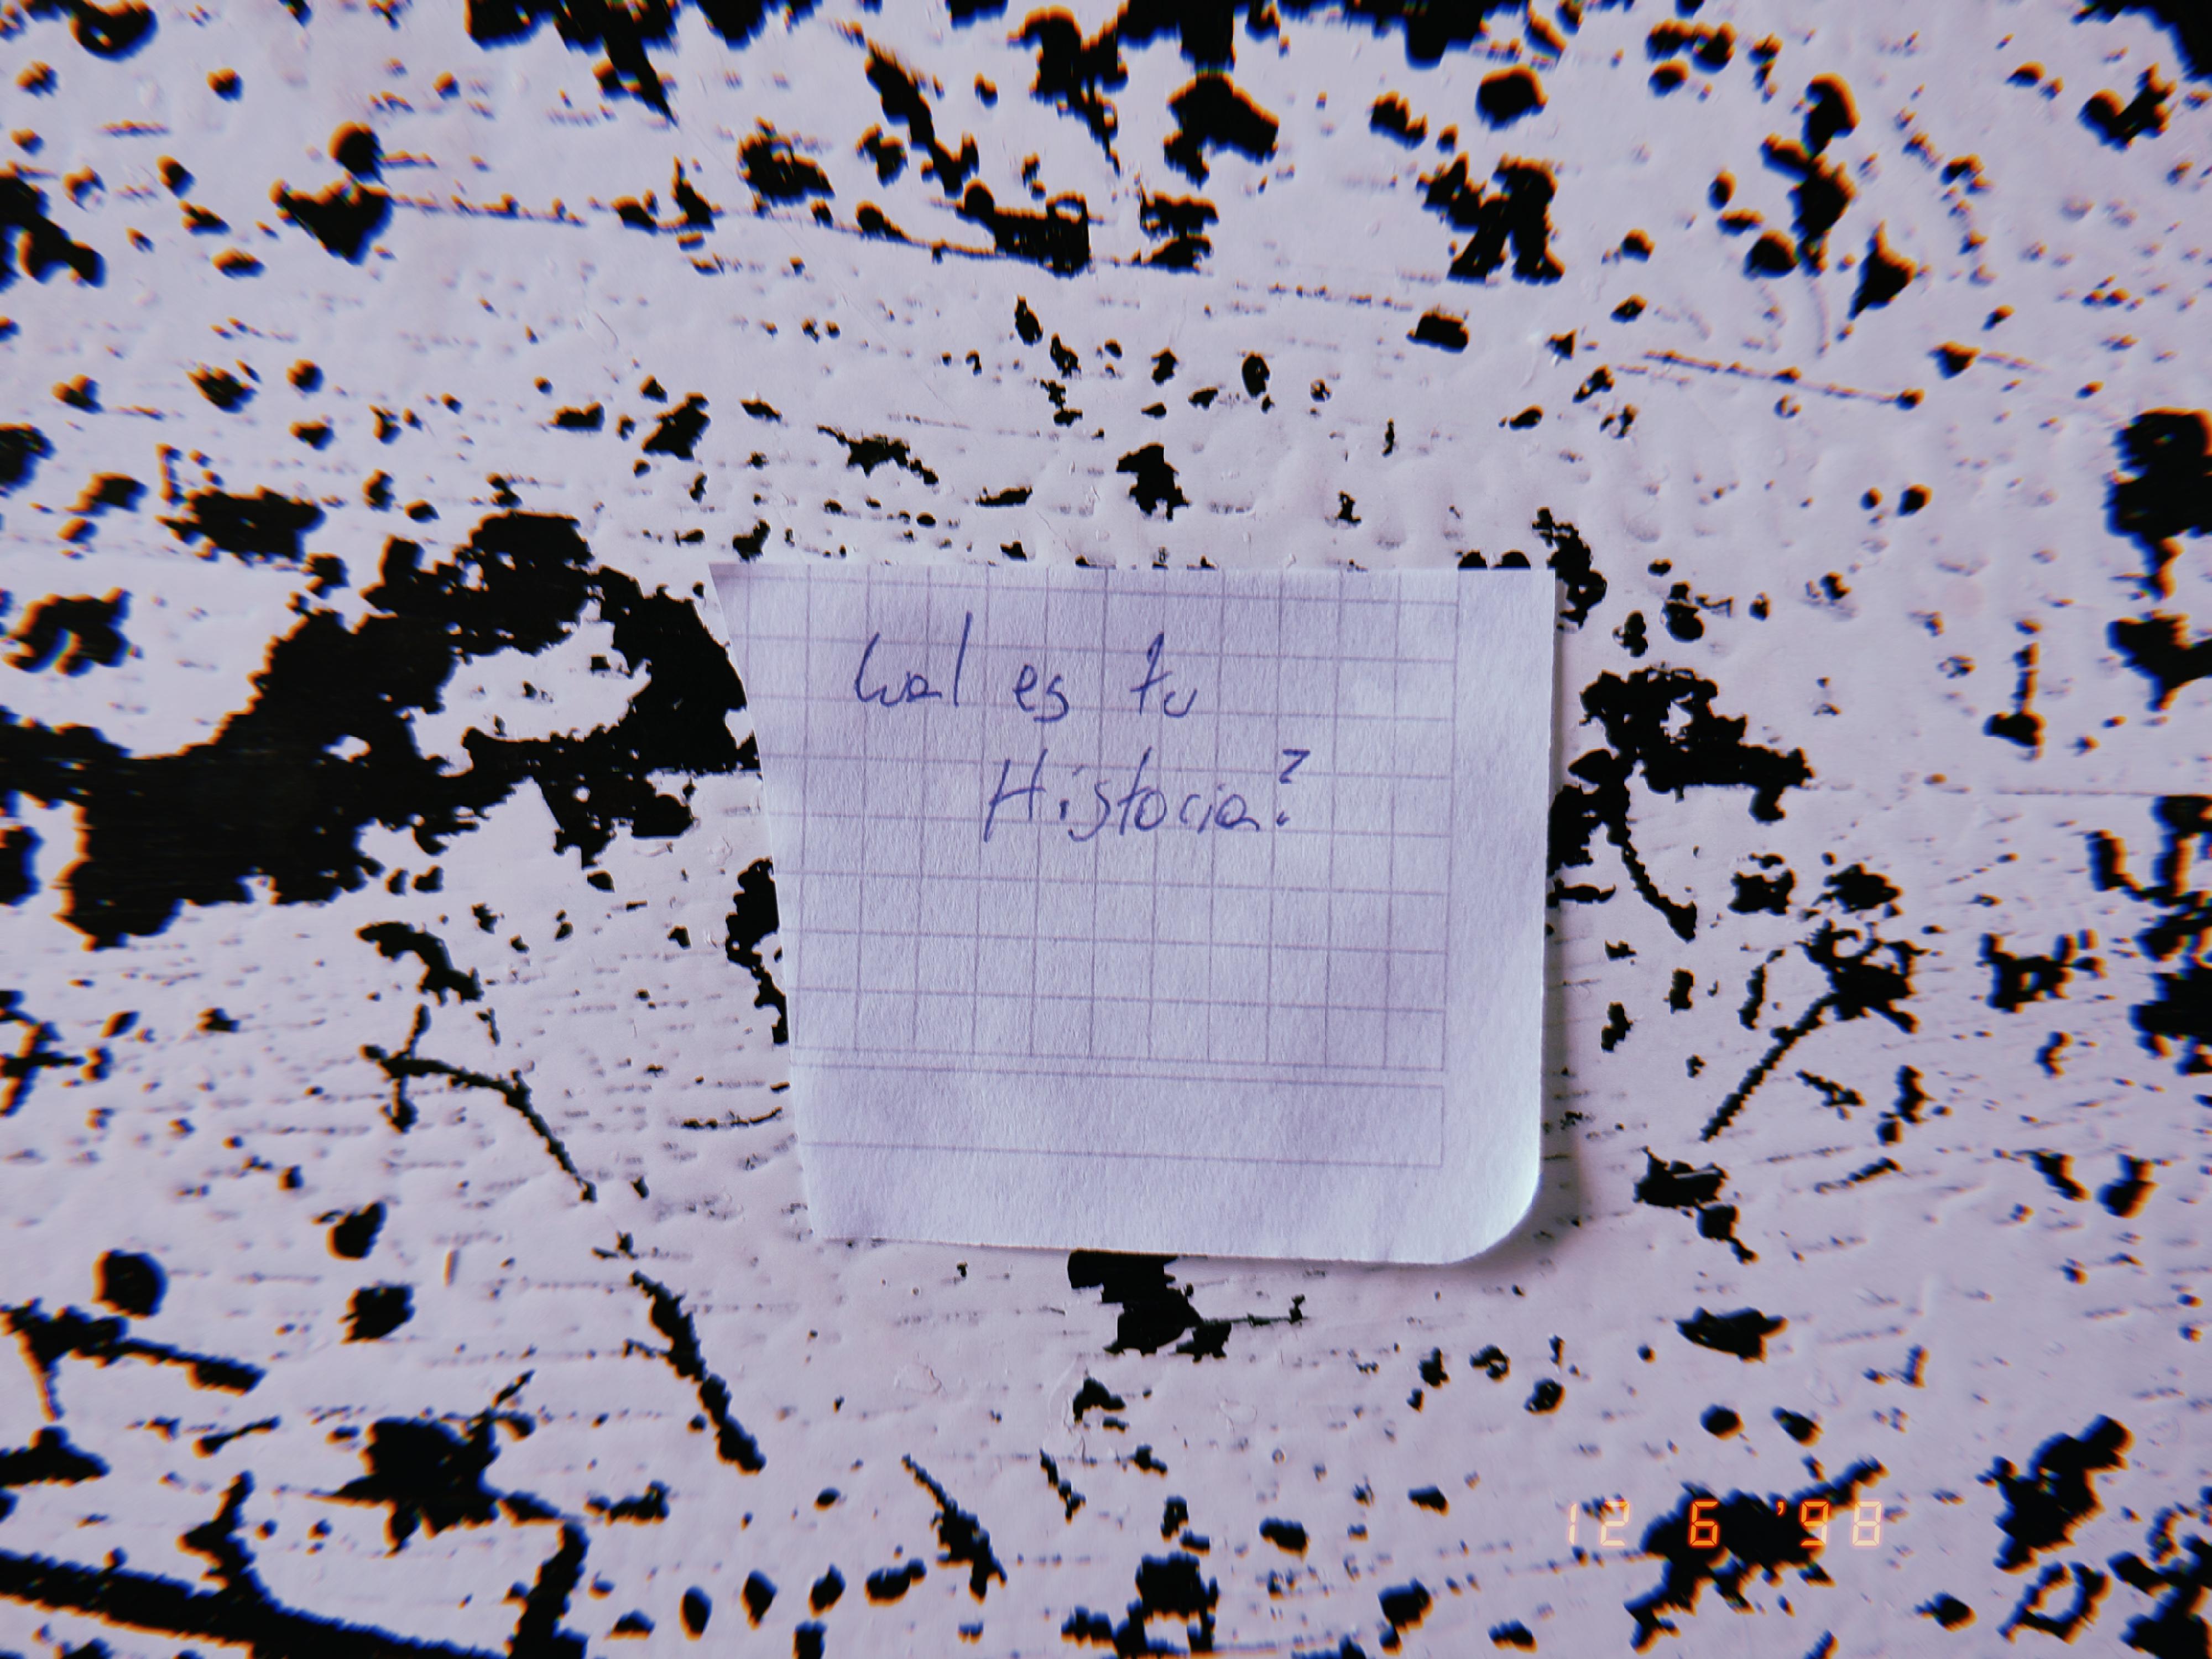 Cual es tu
Historia?
12 6 '98